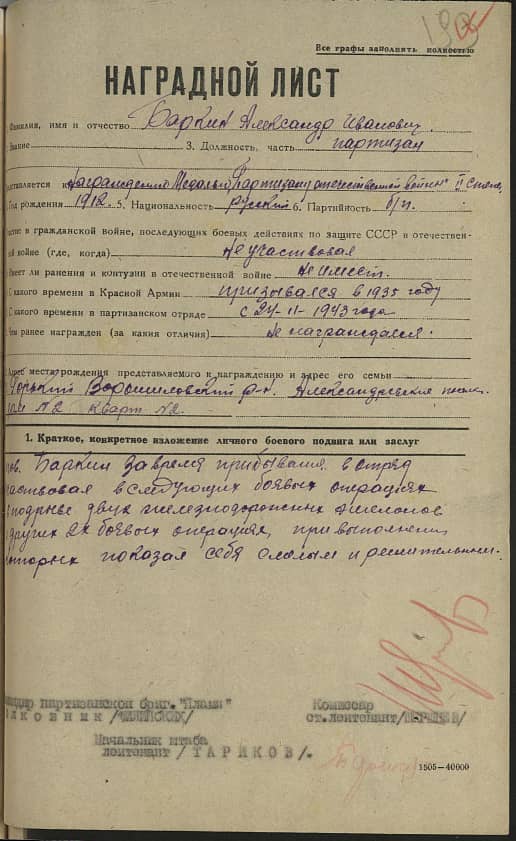 Все графы заполнять полностью
НАГРАДНОЙ ЛИСТ
Фамилия, имя и отчество Баркин Александр Иванович.
Звание 3. Должность, часть партизан
Представляется к награждению Медалью "Партизану отечественной войны" II степ.
Год рождения 1912. 5. Национальность русский 6. Партийность б/п.
Участие в гражданской войне, последующих боевых действиях по защите СССР и отечествен-
ной войне (где, когда) не участвовал
Имеет ли ранения и контузии в отечественной войне не имеет.
С какого времени в Красной Армии призывался в 1935 году
С какого времени в партизанском отряде с 24-II-1943 года
Чем ранее награжден (за какия отличия) не награждался.
Адрес места рождения представляемого к награждению и адрес его семьи
Горький Ворошиловский р-н. Александровские
дом №2 кварт №2.
1. Краткое, конкретное изложение личного боевого подвига или заслуг
тов. Баркин за время прибывания в отряд
участвовал в следующих боевых операциях
в подрыве двух железнодорожных эшелонов
и других 2х боевых операциях, при выполнении
которых показал себя смелым и решительным.
Командир партизанской бриг. "Пламя"
Комиссар
полковник
ст. лейтенант
Начальник штаба
лейтенант /ТАРИКОВ/.
1505—40000